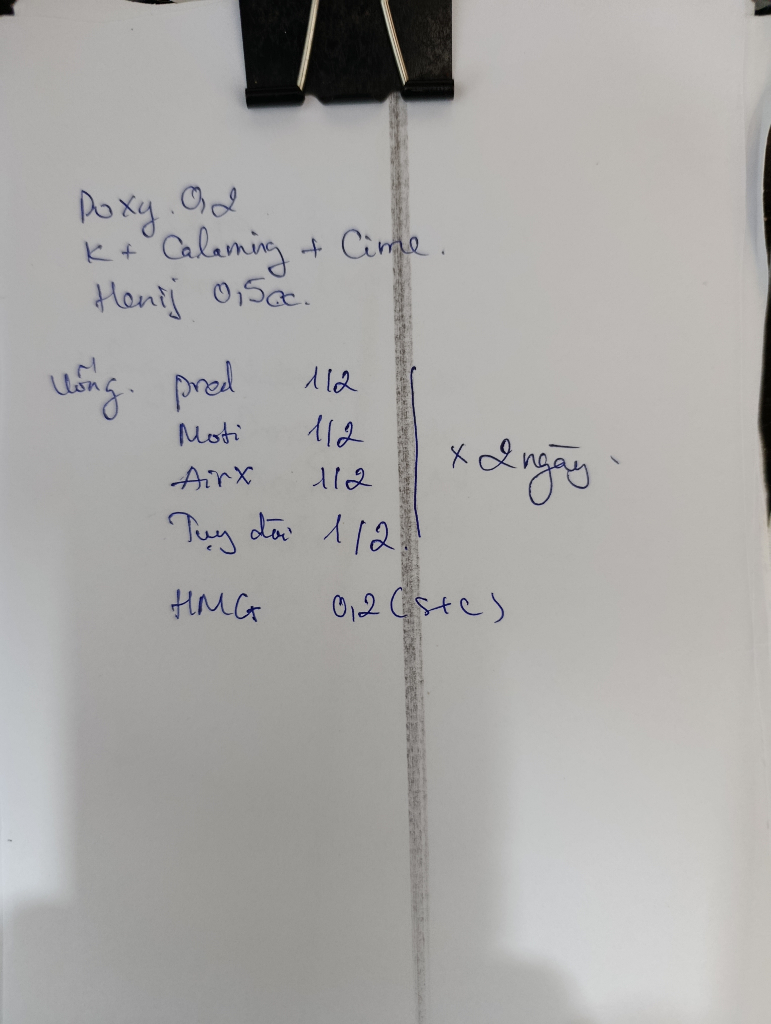 Doxy. 0,2
K + Calaming + Cime.
Henij 0,5cc.
Uống. pred 1/2
Moti 1/2
AirX 1/2
x 2 ngày.
Tuy dài 1/2
HMG 0,2 (s+c)